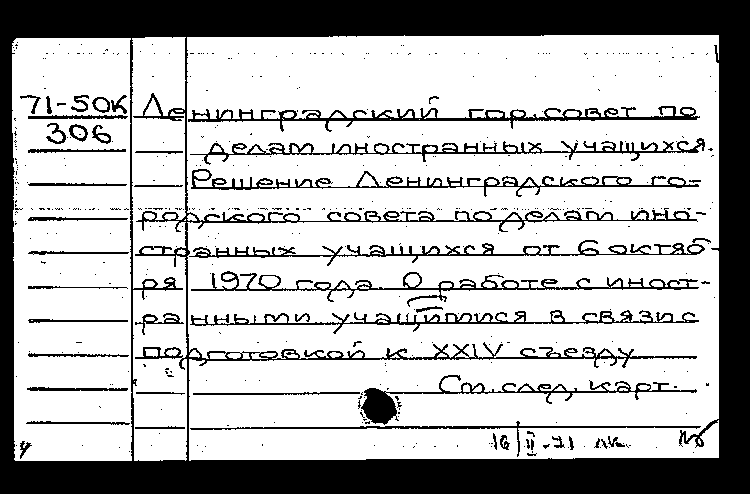 71-50К Ленинградский гор. совет по
306 делам иностранных учащихся.
Решение Ленинградского го-
родского совета по делам ино-
странных учащихся от 6 октяб-
ря 1970 года. О работе с иност-
ранными учащимися в связи с
подготовкой к XXIV съезду
См. след. карт.
16/II-71 лк.